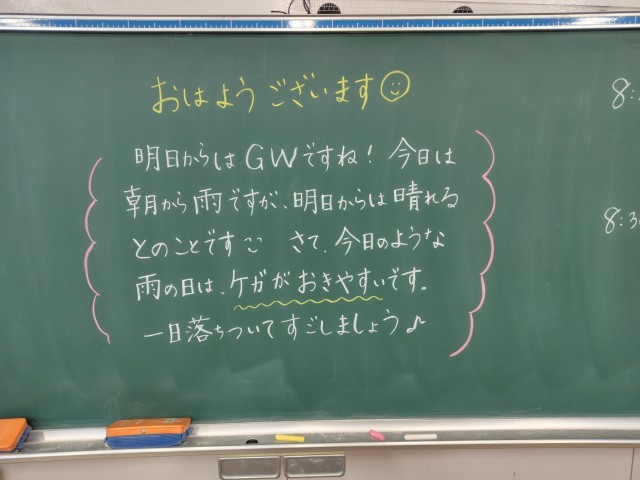 おはようございます☺
明日からはGWですね！今日は
朝から雨ですが、明日からは晴れる
とのことです さて、今日のような
雨の日は、ケガがおきやすいです。
一日落ちついてすごしましょう♪
8:
8:30